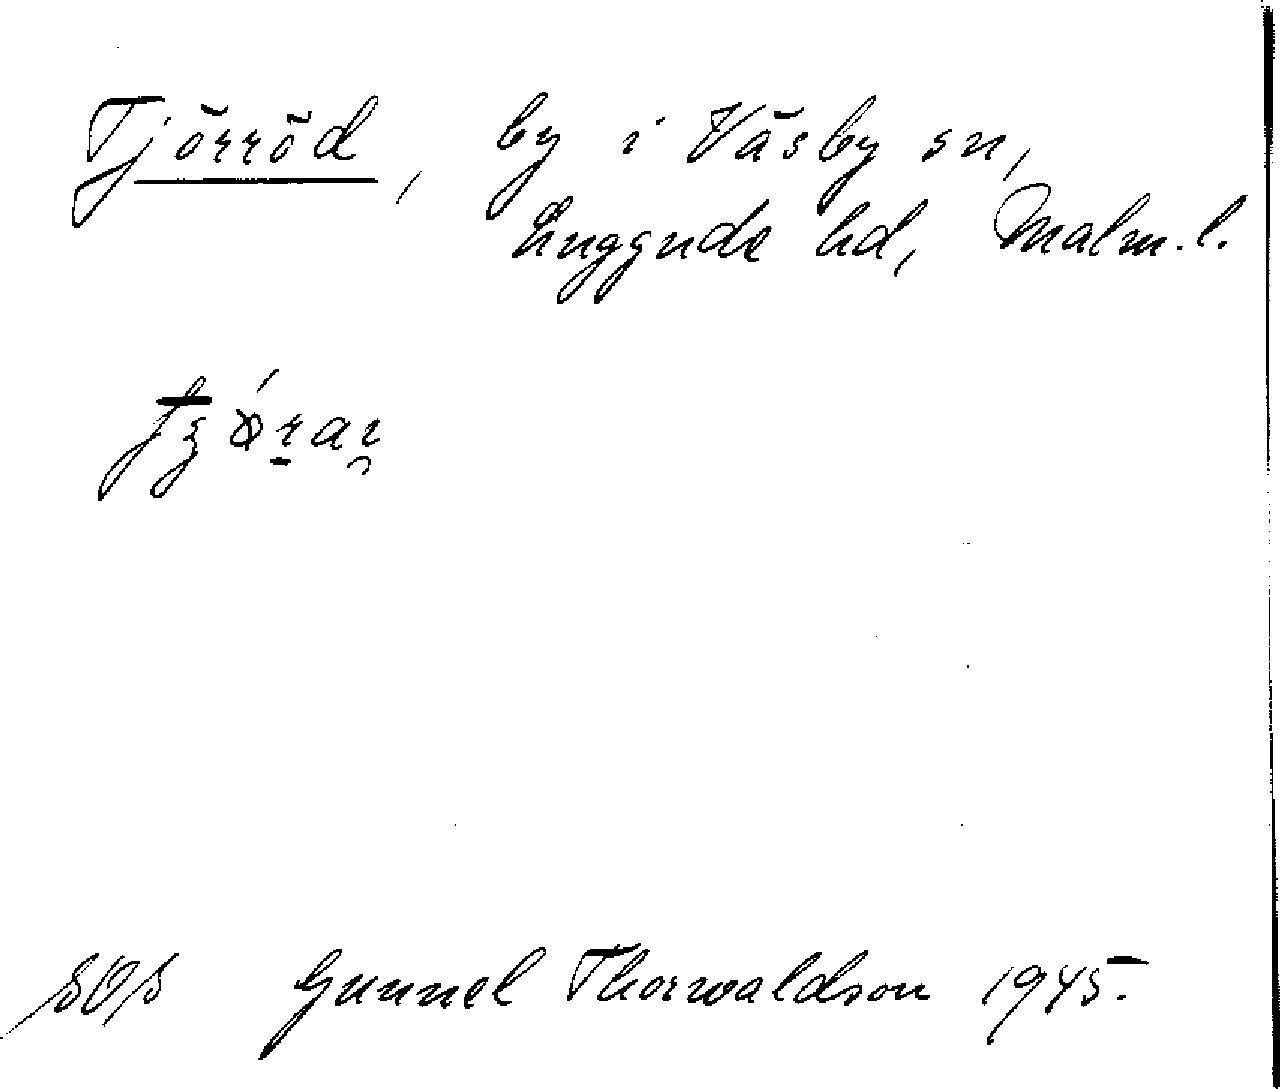 Tjörröd, by i Väsby sn,
Luggude hd, Malm.l.
SOS Gunnel Thorwaldson 1945.